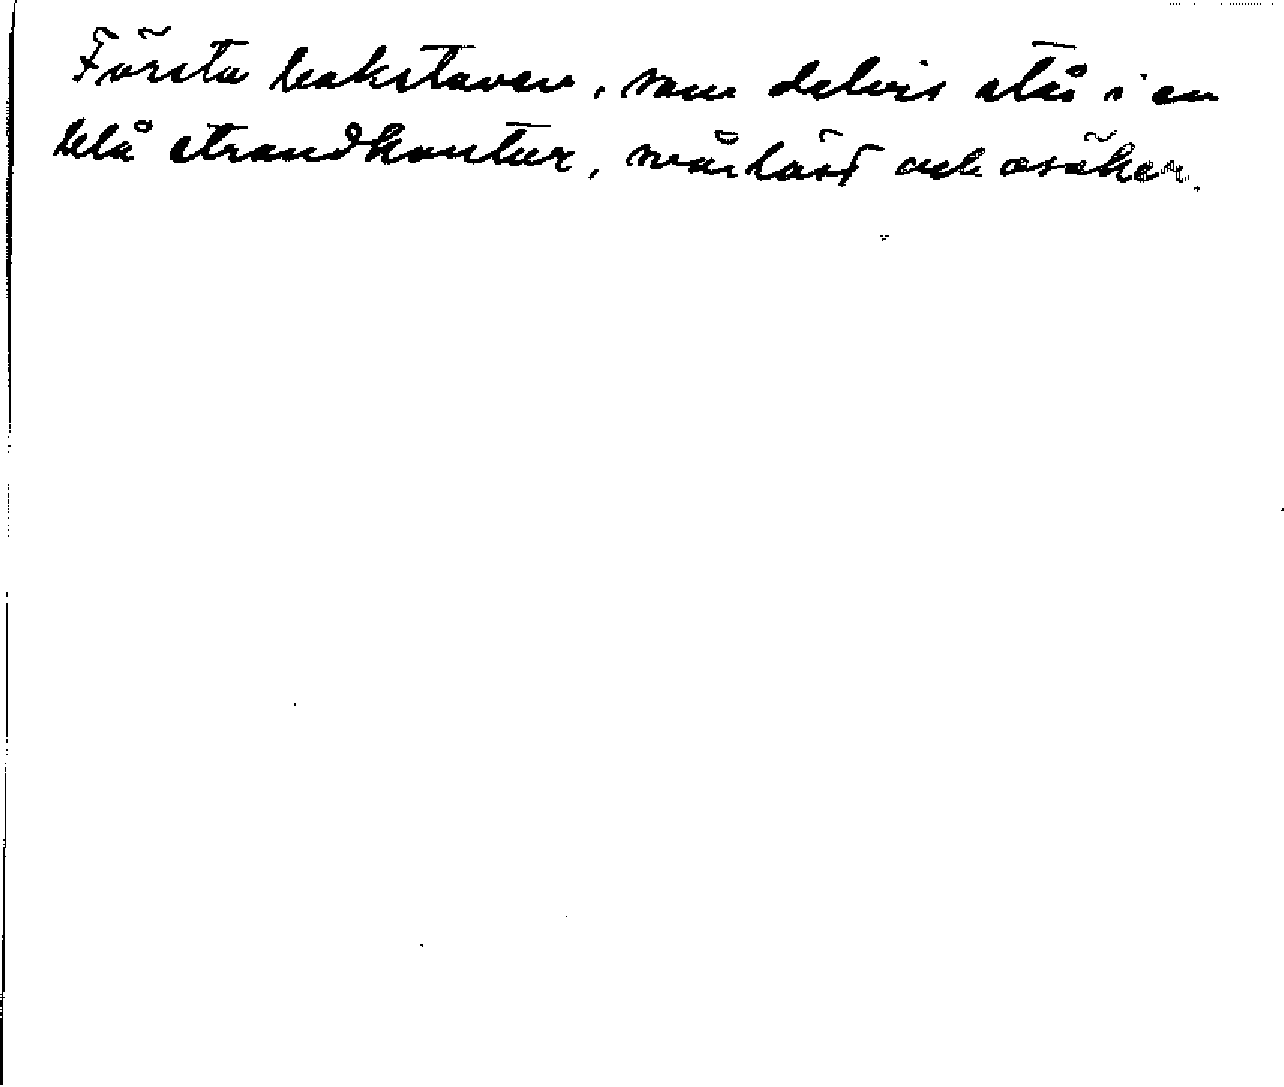 Första bokstaven, som delvis står i en
blå strandkontur, svårläst och osäker.